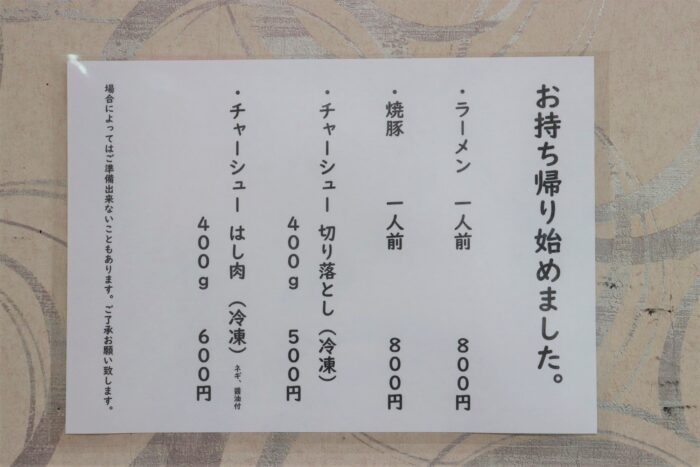 お持ち帰り始めました。
・ラーメン 一人前 800円
・焼豚 一人前 800円
・チャーシュー 切り落とし（冷凍）
400g 500円
・チャーシュー はし肉 （冷凍）ネギ、醤油付
400g 600円
場合によってはご準備出来ないこともあります。ご了承お願い致します。